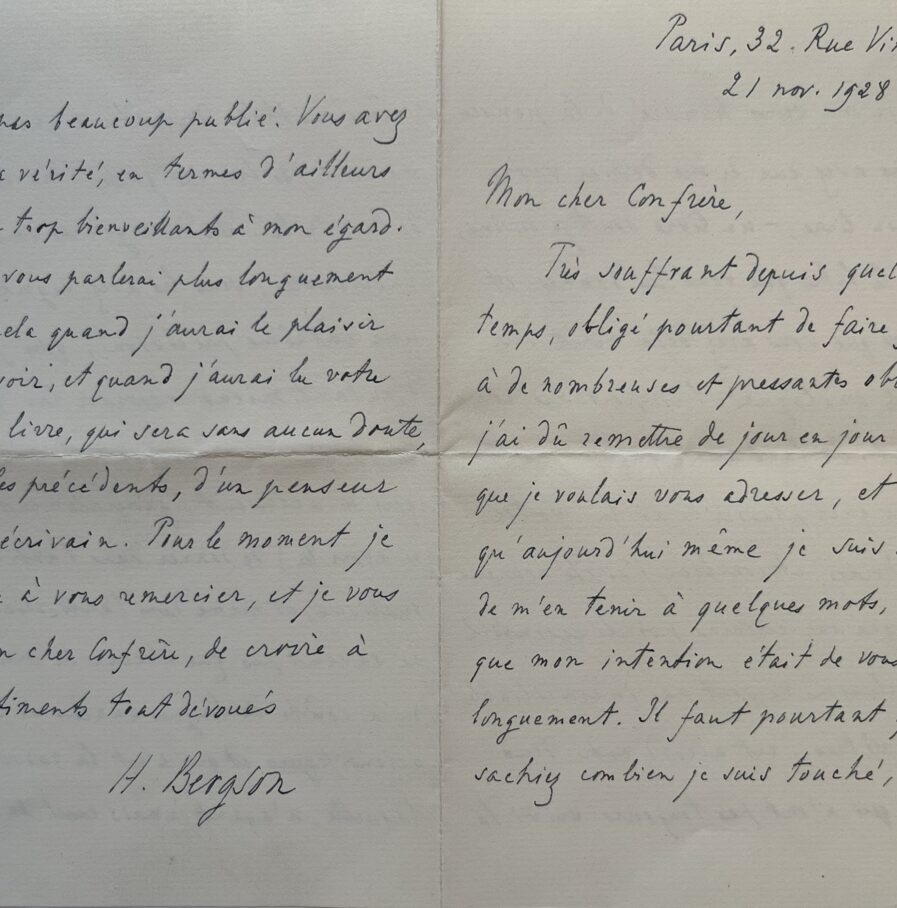 Paris, 32. Rue Vi
21 nov. 1928
Mon cher Confrère,
Très souffrant depuis quel
temps, obligé pourtant de faire
à de nombreuses et pressantes ob
j'ai dû remettre de jour en jour
que je voulais vous adresser, et
qu'aujourd'hui même je suis
de m'en tenir à quelques mots,
que mon intention était de vous
longuement. Il faut pourtant
sachiez combien je suis touché,
pas beaucoup publié. Vous avez
vérité, en termes d'ailleurs
trop bienveillants à mon égard.
vous parlerai plus longuement
ela quand j'aurai le plaisir
voir, et quand j'aurai lu votre
livre, qui sera sans aucun doute,
es précédents, d'un penseur
écrivain. Pour le moment je
à vous remercier, et je vous
n cher Confrère, de croire à
timents tout dévoués
H. Bergson